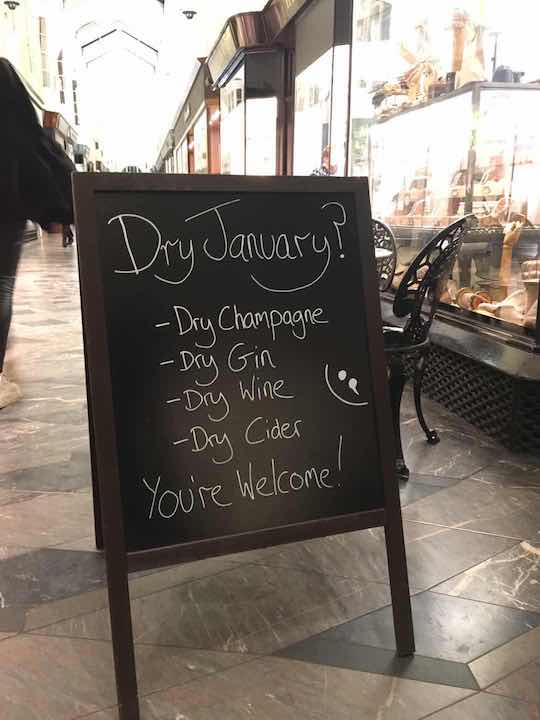 Dry January?
- Dry Champagne
- Dry Gin
- Dry Wine
- Dry Cider
You're Welcome!